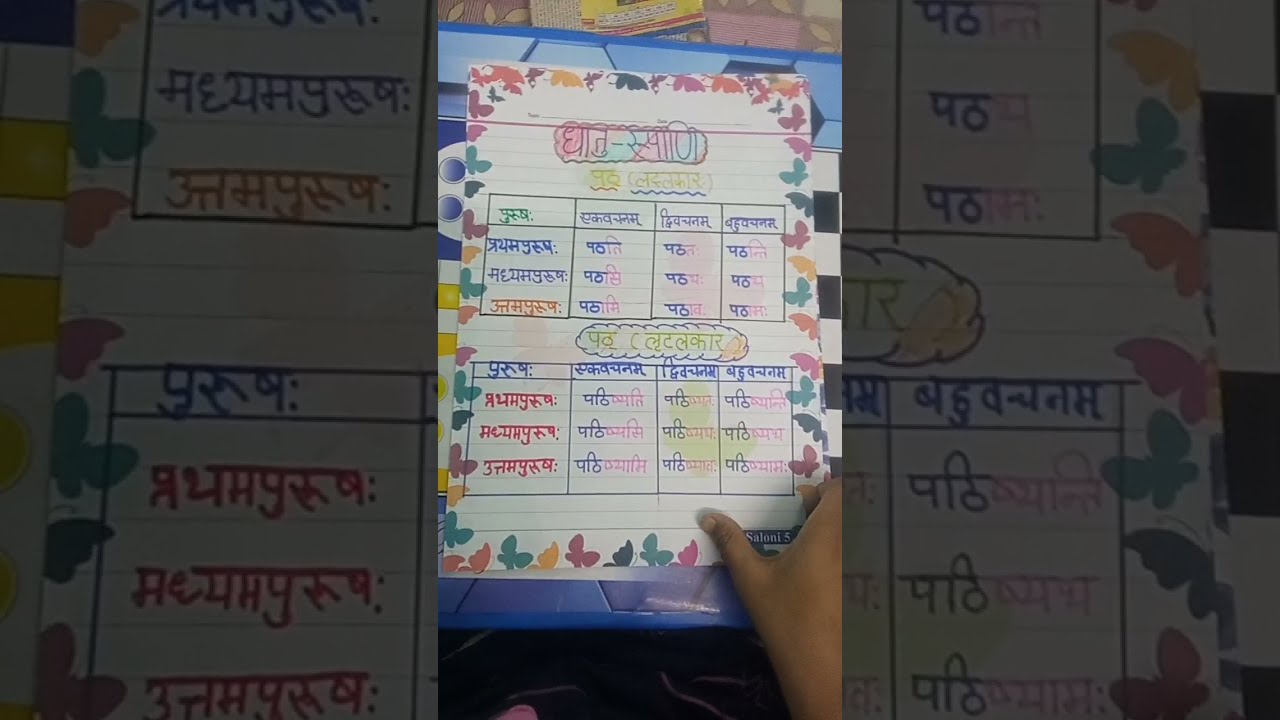 धातु-रूपाणि
पठ (लटलकारः)
पुरूषः एकवचनम् द्विवचनम् बहुवचनम्
प्रथमपुरूषः पठति पठतः पठन्ति
मध्यमपुरूषः पठसि पठथः पठथ
उत्तमपुरूषः पठामि पठावः पठामः
पठ (लृटलकार)
पुरूषः एकवचनम् द्विवचनम् बहुवचनम्
प्रथमपुरूषः पठिष्यति पठिष्यतः पठिष्यन्ति
मध्यमपुरूषः पठिष्यसि पठिष्यथः पठिष्यथ
उत्तमपुरूषः पठिष्यामि पठिष्यावः पठिष्यामः
Saloni 5